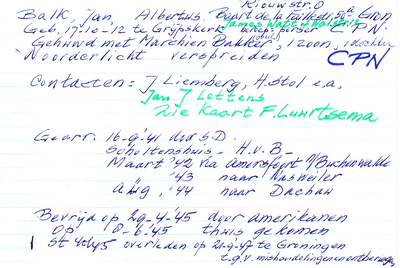 Riouwstr. 0
Balk, Jan Albertus. Baart de la Faillestr. 5a Gron.
Geb. 17-10-'12 te Grijpskerk
C.P.N.
Gehuwd met Marchien Bakker, 1 zoon, 1 dochter
Noorderlicht verspreiden
CPN
Contacten: J Liemberg, H. Stol e.a,
Jan J Lettens
Zie Kaart F. Luurtsema
Gearr. 16-9-'41 door S.D.
Scholtenshuis - H.v.B -
Maart '42 via Amersfoort n/Buchenwalde
'43 naar Natsweiler
Aug, '44 naar Dachau
Bevrijd op 29-4-'45 door Amerikanen
Op 8-6-'45 thuis gekomen
overleden op te Groningen
t.g.v. mishandelingen en ontberingen